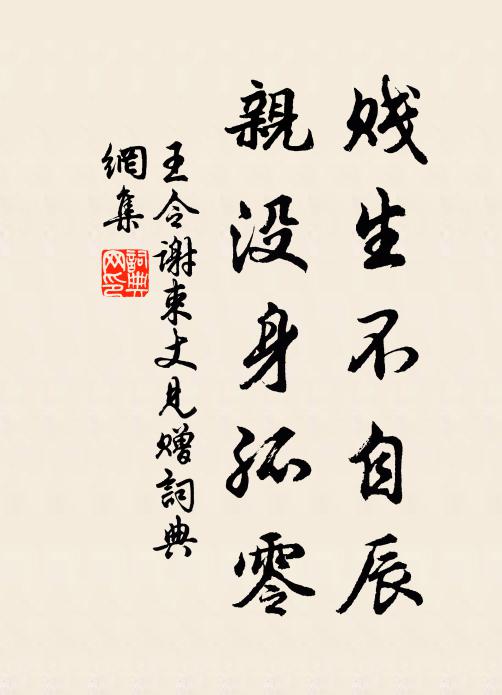 賤生不自辰
親没身孤零
王令謝束丈見贈詞典
網集
詞典
网印